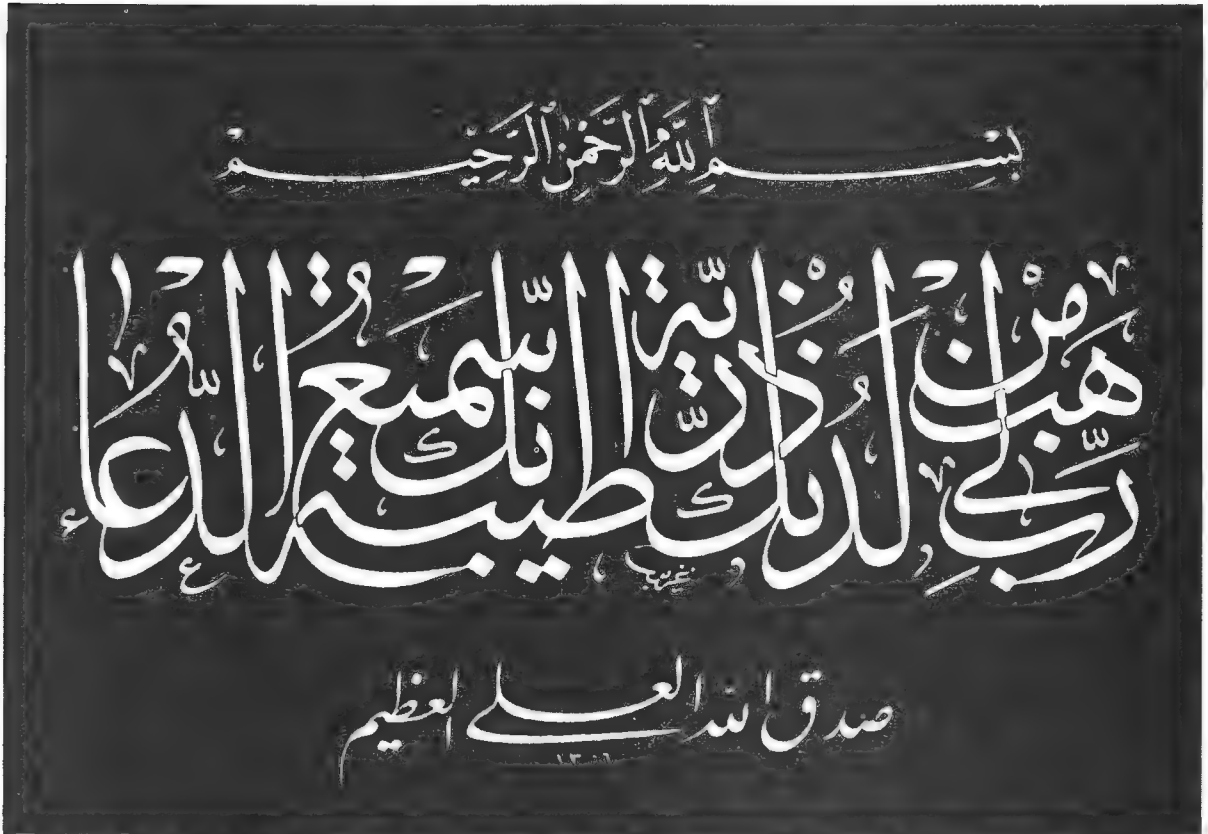 بِسْمِ اللَّهِ الرَّحْمَٰنِ الرَّحِيمِ
رَبِّ هَبْ لِي مِنْ لَدُنْكَ ذُرِّيَّةً طَيِّبَةً إِنَّكَ سَمِيعُ الدُّعَاءِ
صدق الله العلي العظيم